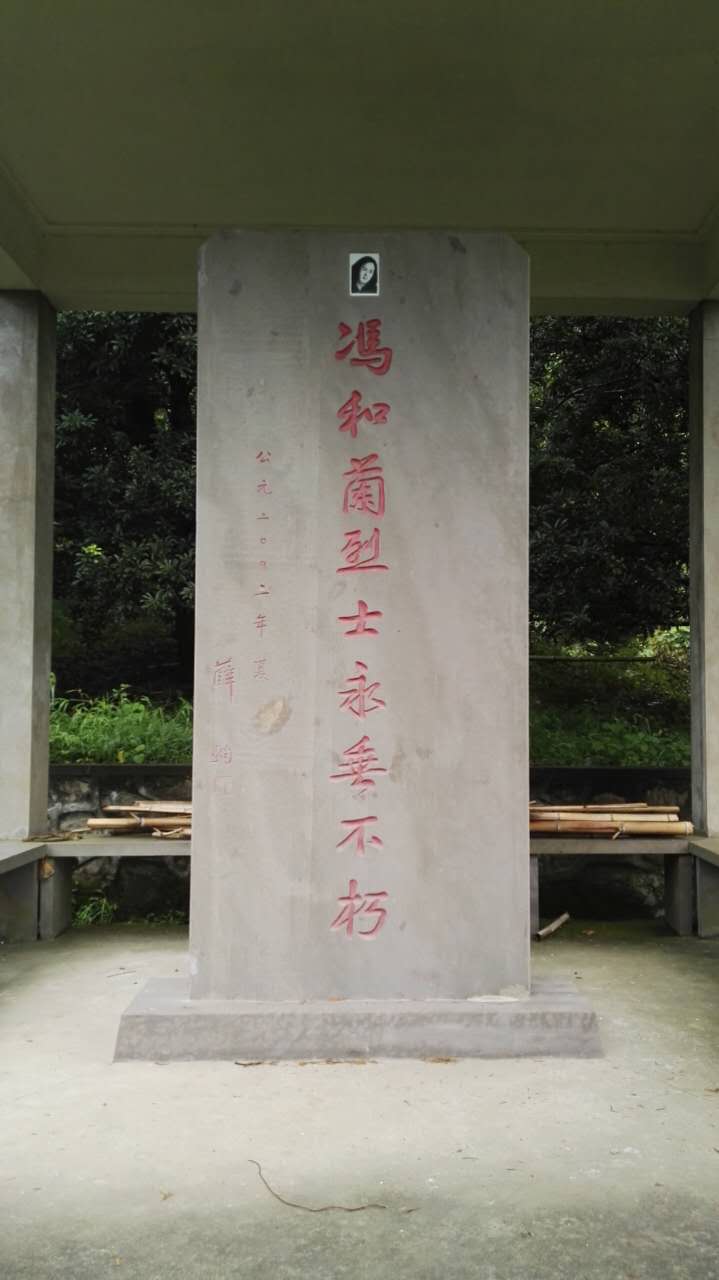 馮和蘭烈士永垂不朽
公元二〇〇二年夏
薛